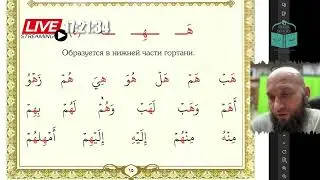 LIVE 17:21:34
STREAMING
هَـ ـهِـ
Образуется в нижней части гортани.
هَبْ هَمْ هَلْ هُوَ هِيَ هُمْ زَهْوُ
أَهُمْ وَهَبَ لَهَبَ وَهُمْ لَهُمْ بِهِمْ
مِنْهُ مِنْهُمْ إِلَيْهِ إِلَيْهِمْ أَمْهِلْهُمْ
١٥